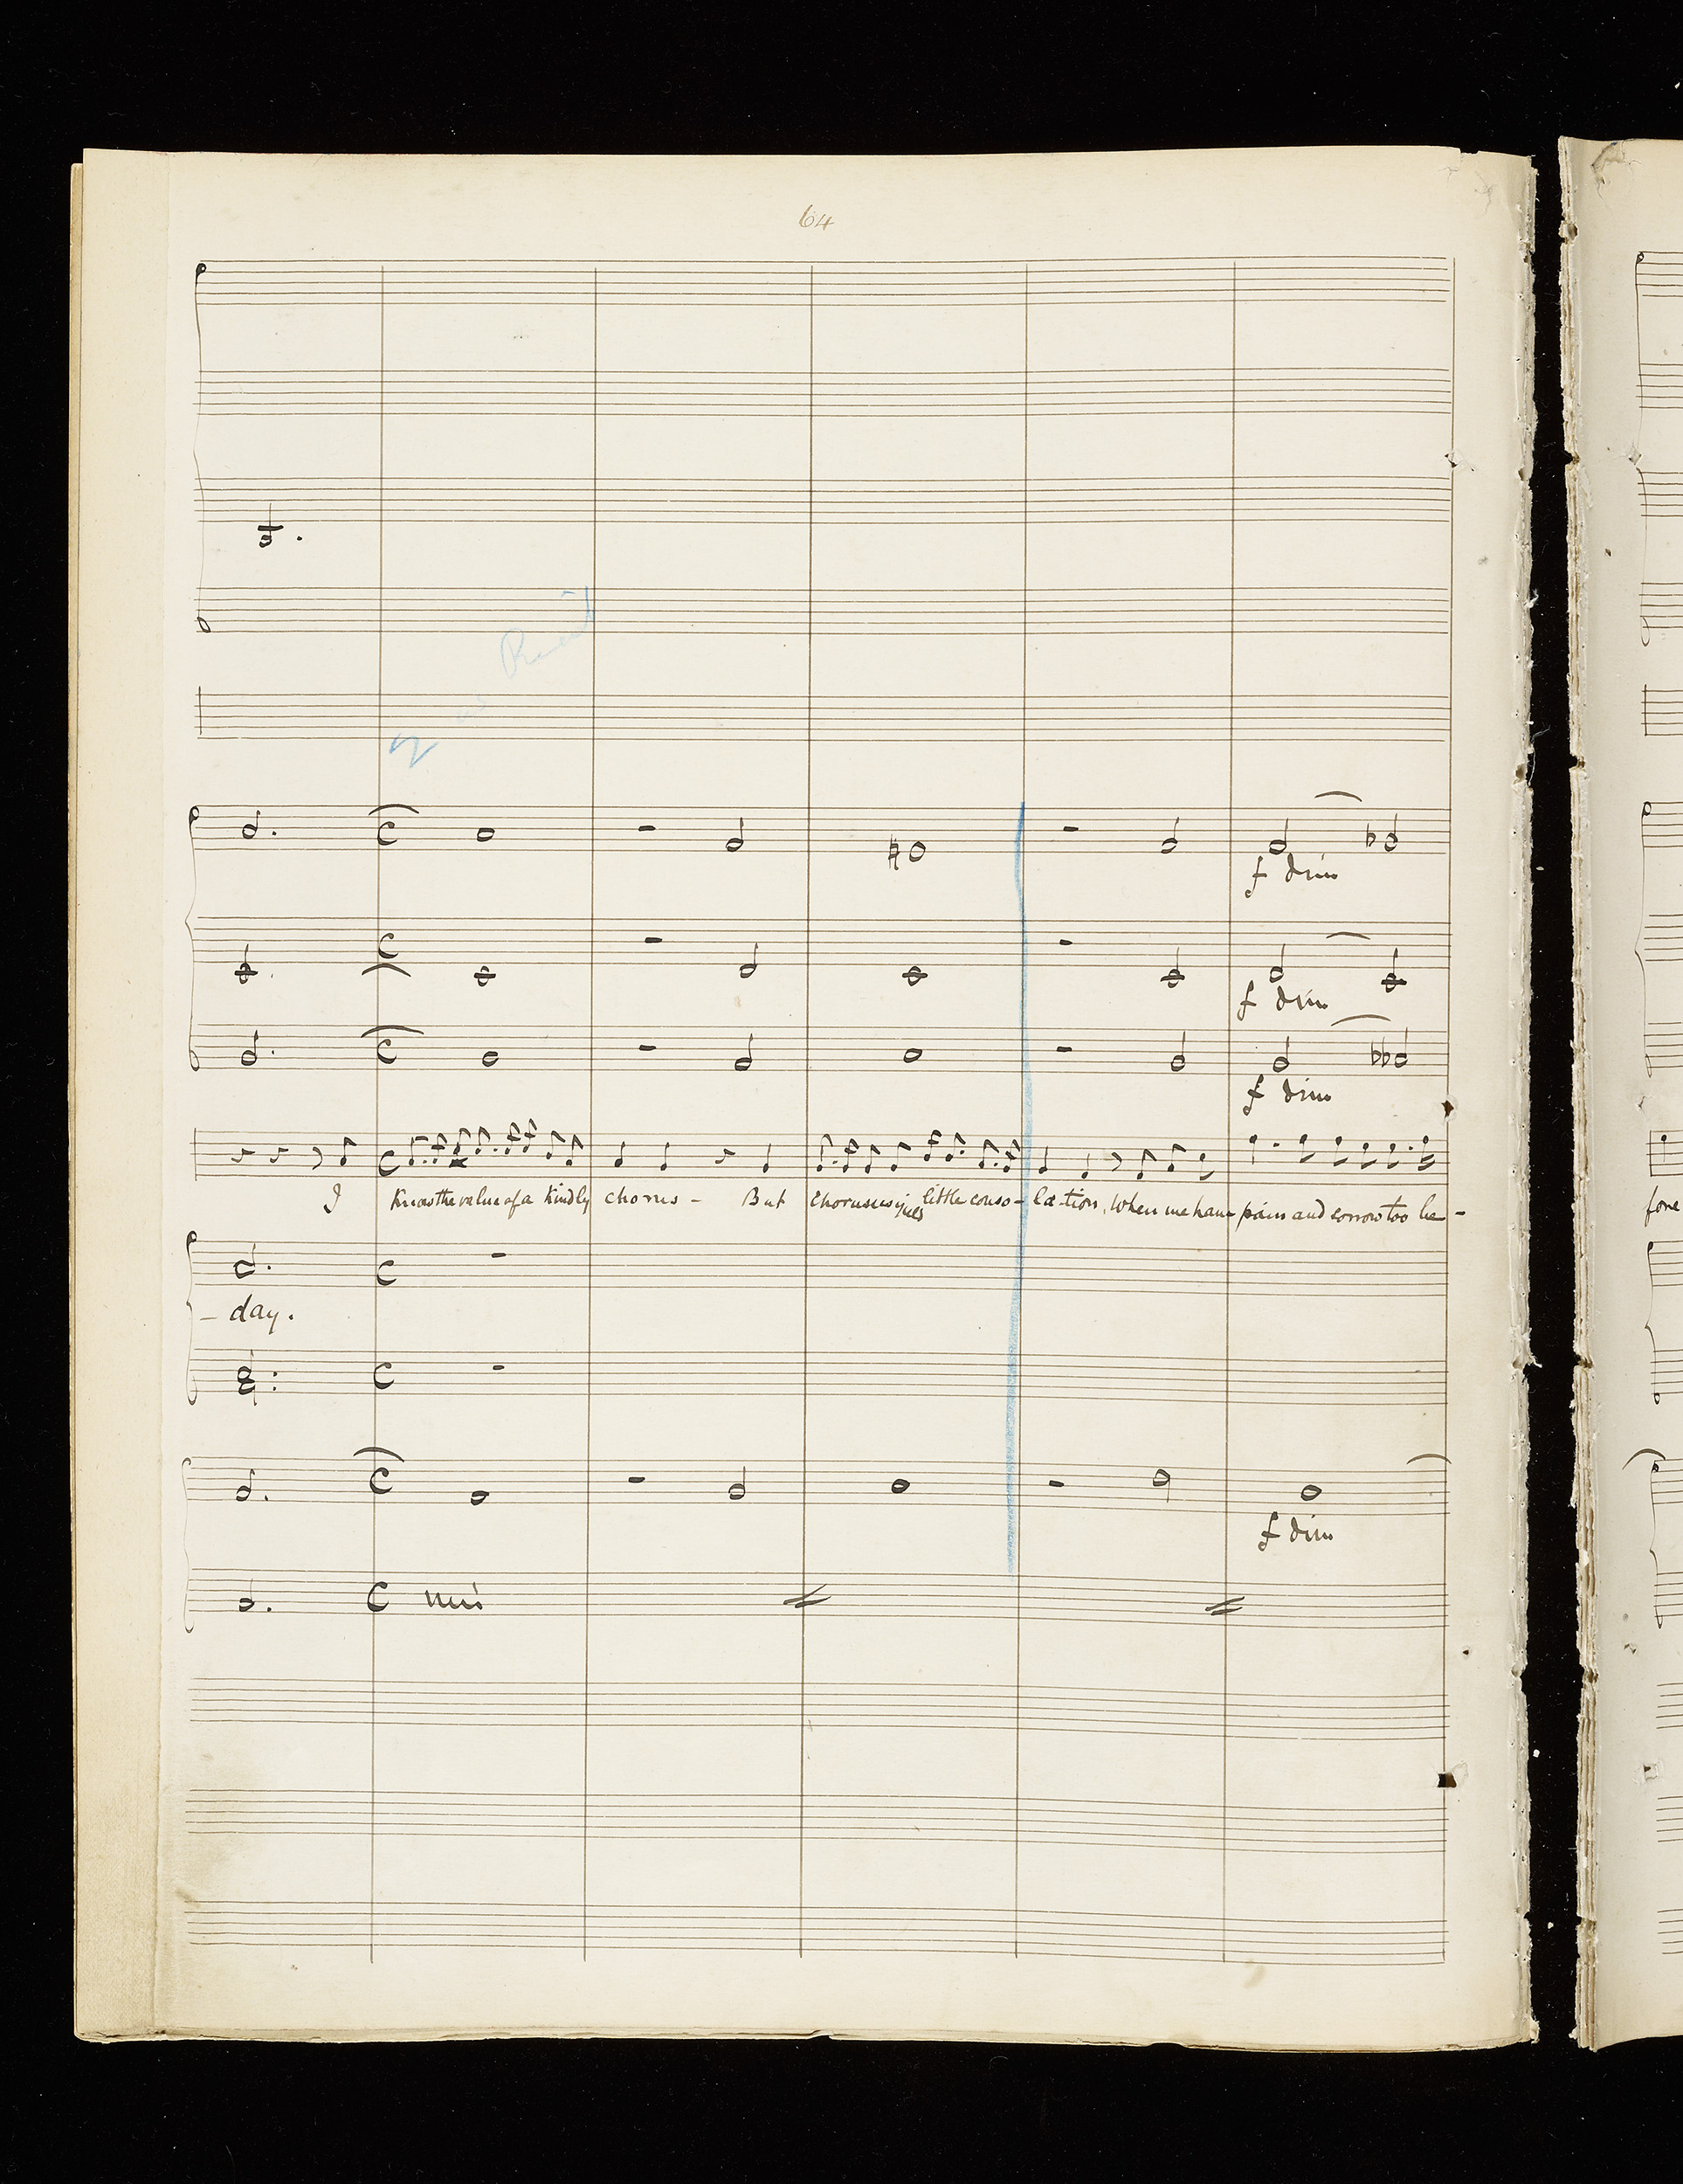 64
Recit
f dim
f dim
f dim
I know the value of a kindly chorus – But choruses yield little conso- la-tion, When we have pain and sorrow too be-
fore
– day.
f dim
unis